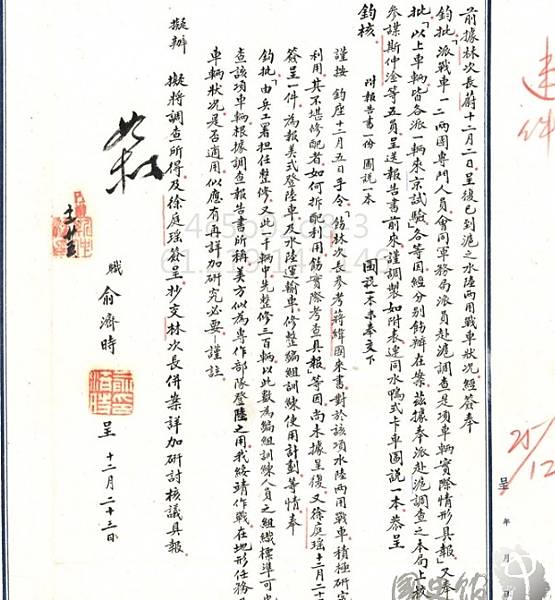 速件
25/12
呈 年 月
前據林次長蔚十二月二日呈後已到滬之水陸兩用戰車狀況經簽奉
鈞批「派戰車一二兩團專門人員會同軍務局派員赴滬調查是項車輛實際情形具報」又奉
批「以上車輛皆各派一輛來京試驗」各等因經分別飭辦在案茲據奉派赴滬調查之本局上校
參謀斯仲淦等五員呈送報告書前來謹調製如附表連同水鴨式卡車圖說一本恭呈
鈞核
附報告書一份 圖說一本
圖說一本未奉交下
謹按 鈞座十二月五日手令「飭林次長參考蔣緯國來書對於該項水陸兩用戰車積極研究
利用其不堪修配者如何拆配利用飭實際考查具報」等因尚未據呈後又徐庭瑤十二月二十
簽呈一件為報美式登陸車及水陸運輸車修整編組訓練使用計劃等情奉
鈞批「由兵工署担任整修又此一千輛中先整修三百輛以此數為編組訓練人員之組織標準可也
查該項車輛根據調查報告書所稱美方似為專作部隊登陸之用我綏靖作戰在地形任務
車輛狀況是否適用似應有再詳加研究必要—謹註
擬辦 擬將調查所得及徐庭瑤簽呈抄交林次長併案詳加研討核議具報
職 俞濟時 呈 十二月二十三日